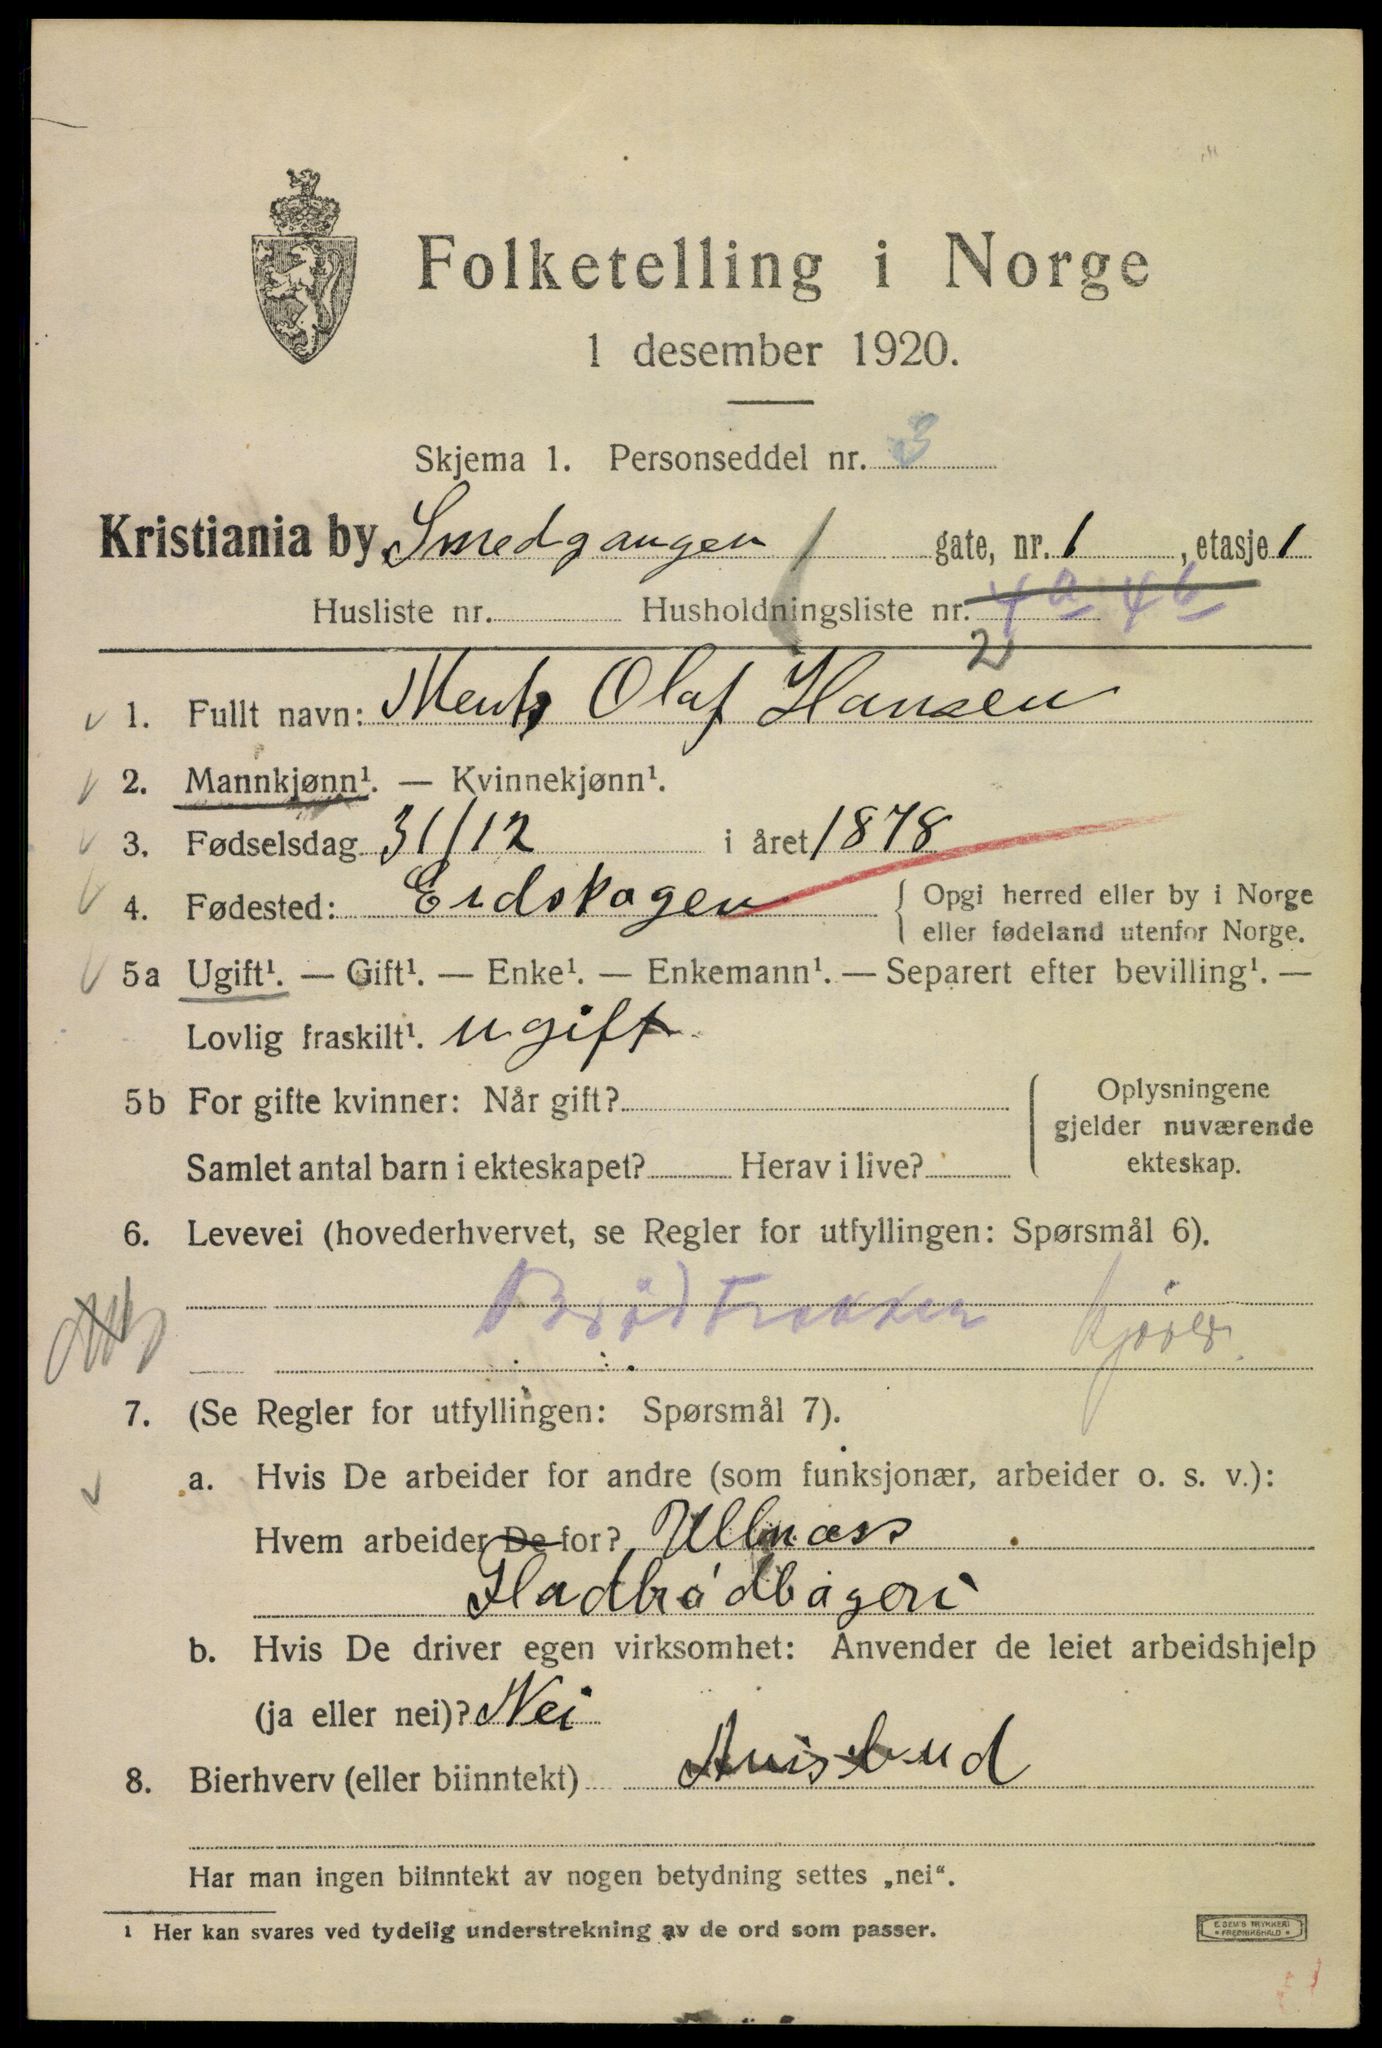 Folketelling i Norge
1 desember 1920.
Skjema 1. Personseddel nr. 3
Kristiania by, Smedgangen 1 gate, nr. 1, etasje 1
Husliste nr. Husholdningsliste nr. 4a 4b
2
1. Fullt navn: Mentz Olaf Hansen
2. Mannkjønn¹. — Kvinnekjønn¹.
3. Fødselsdag 31/12 i året 1878
4. Fødested: Eidskogen { Opgi herred eller by i Norge
eller fødeland utenfor Norge.
5a Ugift¹. — Gift¹. — Enke¹. — Enkemann¹. — Separert efter bevilling¹. —
Lovlig fraskilt¹. ugift
5b For gifte kvinner: Når gift? { Oplysningene
gjelder nuværende
ekteskap.
Samlet antal barn i ekteskapet? Herav i live?
6. Levevei (hovederhvervet, se Regler for utfyllingen: Spørsmål 6).
Brödtrekker kjörer.
7. (Se Regler for utfyllingen: Spørsmål 7).
a. Hvis De arbeider for andre (som funksjonær, arbeider o. s. v.):
Hvem arbeider De for? Ullnæss
Fladbrödbageri
b. Hvis De driver egen virksomhet: Anvender de leiet arbeidshjelp
(ja eller nei)? Nei
8. Bierhverv (eller biinntekt) Avisbud
Har man ingen biinntekt av nogen betydning settes „nei“.
1 Her kan svares ved tydelig understrekning av de ord som passer.
E. SEM'S TRYKKERI
* FREDRIKSHALD *